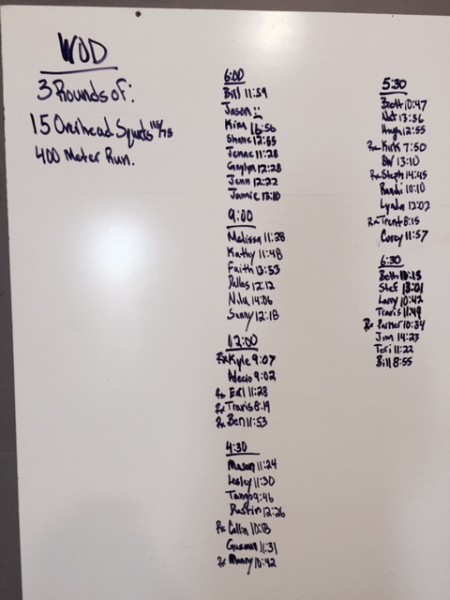 WOD
3 Rounds of:
15 Overhead Squats 115/75
400 Meter Run.
6:00
Bill 11:59
Jason
Kim 16:56
Shane 12:55
Jenae 11:28
12:28
Jenn 12:22
Jamie 13:10
9:00
Melissa 11:38
Kathy 11:48
Faith 13:53
Dallas 12:12
14:06
Sunny 12:18
12:00
Rx Kyle 9:07
Alecio 9:02
Rx Ed 11:28
Rx Travis 8:19
Rx Ben 11:53
4:30
Mason 11:24
Lesley 11:30
Tango 9:46
Dustin 12:26
Rx Collin 10:18
11:31
Rx Manny 10:42
5:30
Brett 10:47
Nat 13:56
Hugh 12:55
Rx Kirk 7:50
BW 13:10
Rx Steph 14:45
Randi 10:10
Lynda 12:02
Rx Trent 8:15
Corey 11:57
6:30
Beth 10:15
Stef 13:01
Larry 10:42
Travis 11:49
Rx Parker 10:34
Jim 14:23
Teri 11:22
Bill 8:55